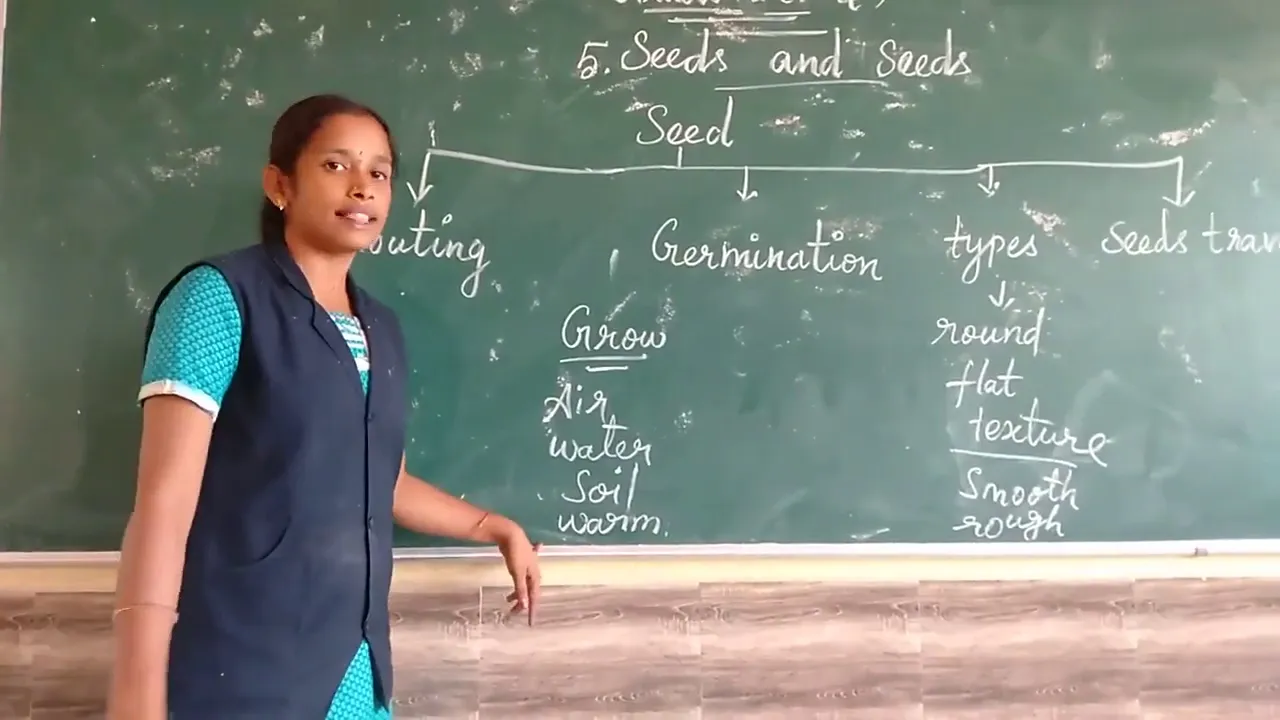 5. Seeds and Seeds
Seed
outing Germination types Seeds trav
Grow
Air
water
Soil
warm.
round
flat
texture
Smooth
rough